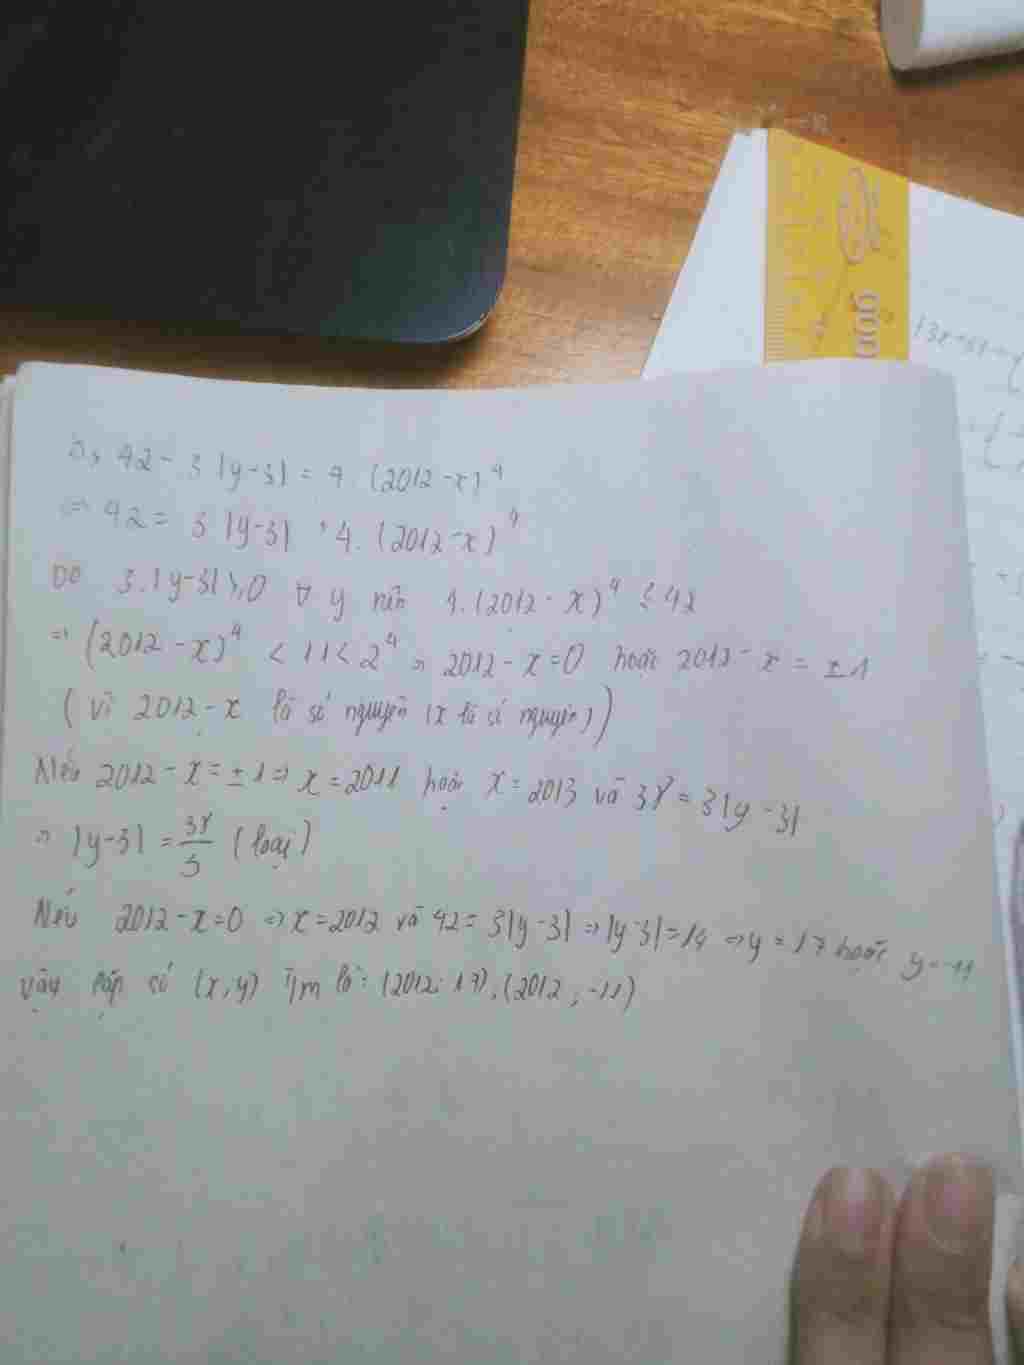 b, 42 - 3 |y-3| = 4. (2012-x)⁴
=> 42 = 3 |y-3| + 4. (2012-x)⁴
Do 3.|y-3| ≥ 0 ∀ y nên 4.(2012-x)⁴ ≤ 42
=> (2012-x)⁴ < 11 < 2⁴ => 2012-x=0 hoặc 2012-x = ±1
(vì 2012-x là số nguyên (x là số nguyên))
Nếu 2012-x=±1 => x=2011 hoặc x=2013 và 38=3|y-3|
=> |y-3| = 38/3 (loại)
Nếu 2012-x=0 => x=2012 và 42=3|y-3| => |y-3|=14 => y=17 hoặc y=-11
Vậy cặp số (x,y) tìm là: (2012; 17), (2012; -11)
goo